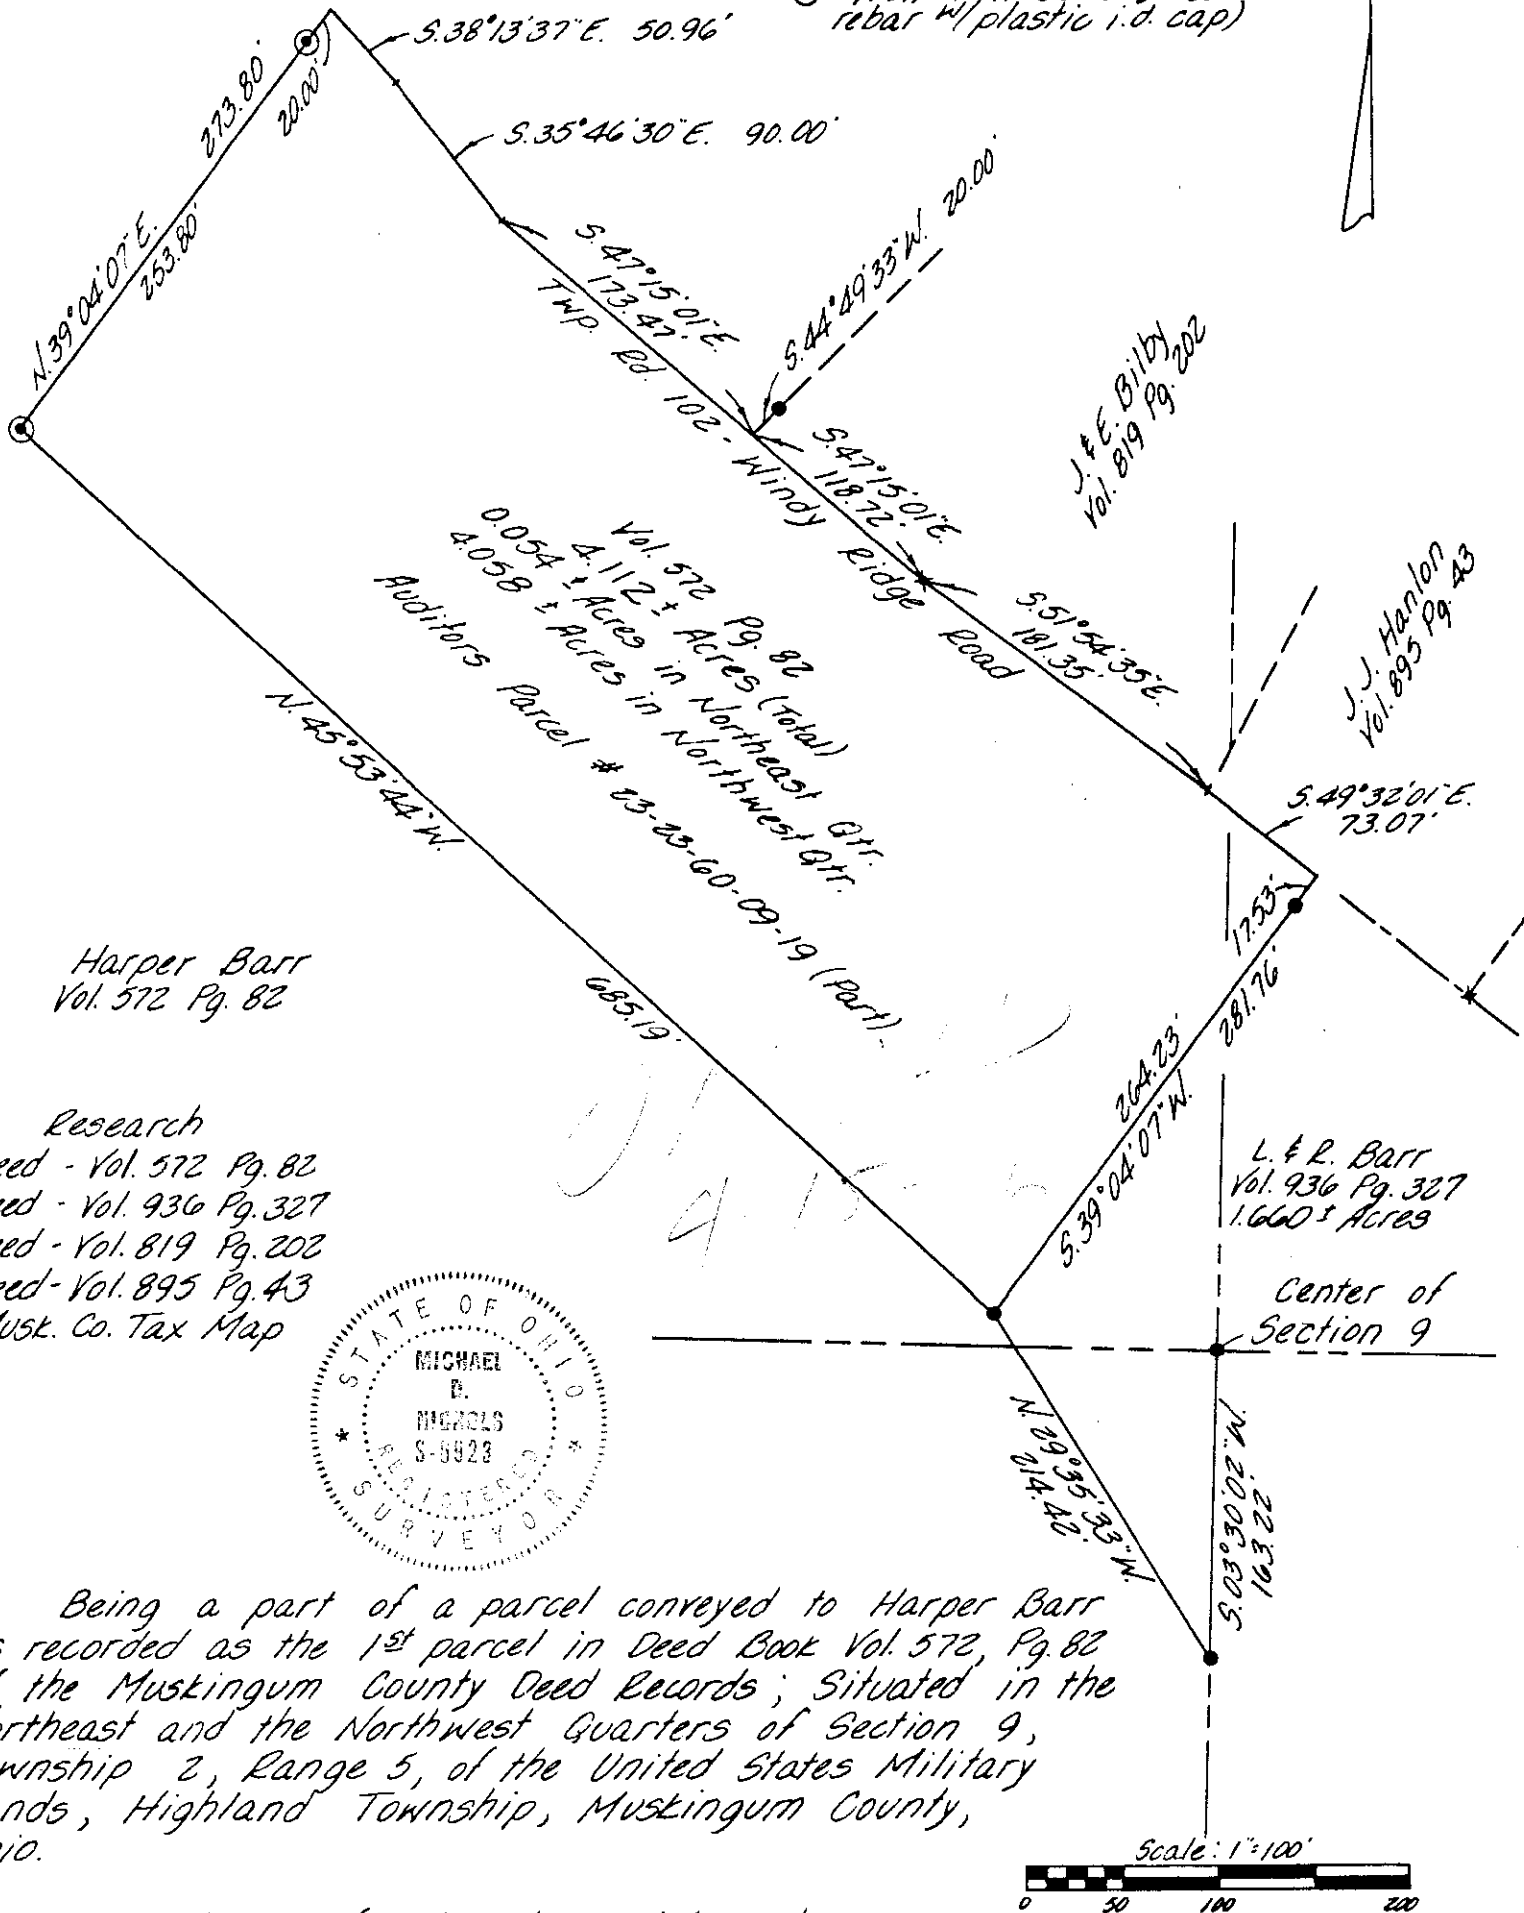 rebar w/plastic i.d. cap)
S.38°13'37"E. 50.96'
273.80'
20.00'
S.35°46'30"E. 90.00'
N.39°04'07"E.
253.80'
S.47°15'01"E.
173.47'
S.44°49'33"W. 20.00'
Twp. Rd. 102 - Windy Ridge Road
J. & E. Bilby
Vol. 819 Pg. 202
S.47°15'01"E.
118.72'
S.51°54'35"E.
181.35'
J. J. Hanlon
Vol. 895 Pg. 43
Vol. 572 Pg. 82
4.112 ± Acres (Total)
0.054 ± Acres in Northeast Qtr.
4.058 ± Acres in Northwest Qtr.
Auditors Parcel # 23-23-60-09-19 (Part)
S.49°32'01"E.
73.07'
N.45°53'44"W.
685.19'
17.53'
264.23'
281.76'
S.39°04'07"W.
Harper Barr
Vol. 572 Pg. 82
L. & R. Barr
Vol. 936 Pg. 327
1.660 ± Acres
Research
eed - Vol. 572 Pg. 82
eed - Vol. 936 Pg. 327
eed - Vol. 819 Pg. 202
eed - Vol. 895 Pg. 43
usk. Co. Tax Map
Center of
Section 9
STATE OF OHIO
MICHAEL
D.
NICHOLS
REGISTERED
SURVEYOR
N. 29°35'33"W.
214.42'
S.03°30'02"W.
163.22'
Being a part of a parcel conveyed to Harper Barr
s recorded as the 1st parcel in Deed Book Vol. 572, Pg. 82
f the Muskingum County Deed Records; Situated in the
ortheast and the Northwest Quarters of Section 9,
wnship 2, Range 5, of the United States Military
nds, Highland Township, Muskingum County,
io.
Scale: 1"=100'
0 50 100 200